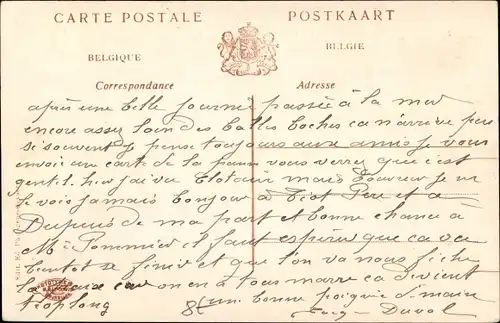 CARTE POSTALE
POSTKAART
BELGIQUE
BELGIE
Correspondance
Adresse
après une belle journée passée à la mer
encore assez loin des balles boches ca n'arrive pas
si souvent je pense toujours aux amis je vous
envoi une carte de la panne vous verrez que c'est
gentil hier j'ai vu Clotaire mais je ne
le vois jamais bonjour à Piot Père et a
Dupuis de ma part et bonne chance a
Mr Pommier il faut espérer que ca va
bientot se finir et que l'on va nous fiche
la paix car on en à tous marre ca devient
trop long
une bonne poignée de main
Duval